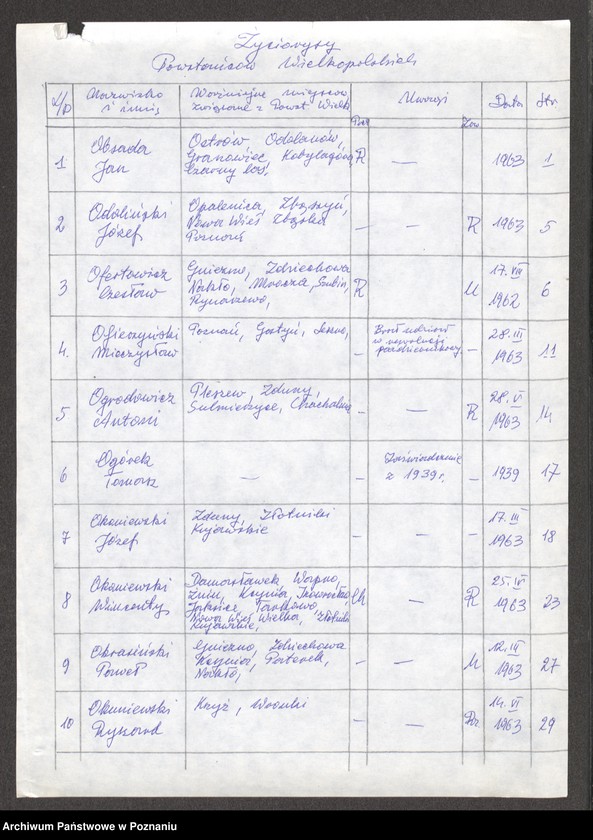 Życiorysy
Powstańców Wielkopolskich
L/p Nazwisko i imię Ważniejsze miejscow. związane z Powst. Wielk. Uwagi Data Str.
1 Obsada Jan Ostrów, Odolanów, Granowiec, Kobylagóra Czarny las, R — 1963 1
2 Odoliński Józef Opalenica, Zbąszyń, Nowa Wieś Zbąska Poznań — — R 1963 5
3 Ofertowicz Czesław Gniezno, Zdziechowa Nakło, Mrocza, Szubin, Rynarzewo, R M 17.VIII 1962 6
4. Ofierzyński Mieczysław Poznań, Gostyń, Leszno, — Brał udział w rewolucji październikowej — 28.III 1963 11
5 Ogrodowicz Antoni Pleszew, Zduny, Sulmierzyce, Chachalnia — — R 28.V 1963 14
6 Ogórek Tomasz — — Zaświadczenie z 1939 r. — 1939 17
7 Okoniewski Józef Zduny, Złotniki Kujawskie — — — 17.III 1963 18
8 Okoniewski Wincenty Damasławek, Wapno, Żnin, Kcynia, Inowrocław, Jaksice, Tarkowo, Nowa Wieś Wielka, Złotniki Kujawskie, — R 25.IV 1963 23
9 Okrasiński Paweł Gniezno, Zdziechowa Kcynia, Nakło, — — M 12.III 1963 27
10 Okuniewski Ryszard Krzyż, Wronki — — 14.VI 1963 29
Archiwum Państwowe w Poznaniu